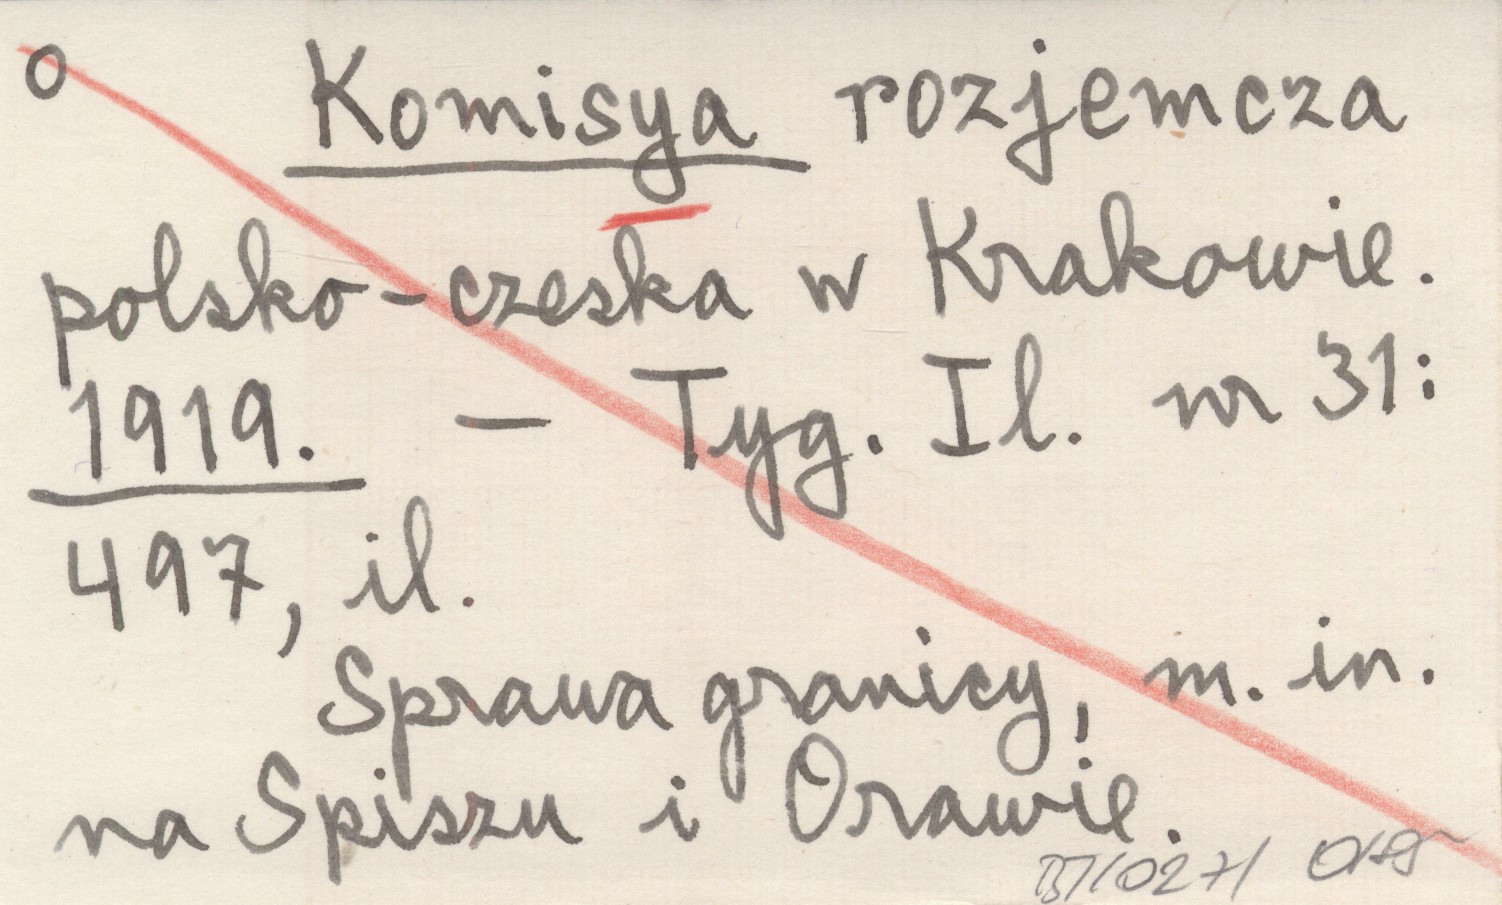 o Komisya rozjemcza
polsko-czeska w Krakowie.
1919. — Tyg. Il. nr 31:
497, il.
Sprawa granicy, m. in.
na Spiszu i Orawie.